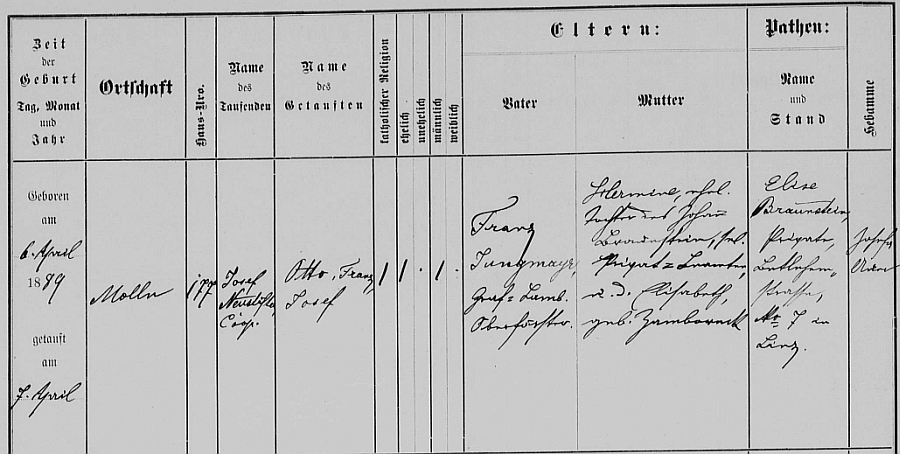 Zeit
der
Geburt
Tag, Monat
und
Jahr
Ortschaft
Haus-Nro.
Name
des
Taufenden
Name
des
Getauften
katholischer Religion
ehelich
unehelich
männlich
weiblich
Eltern:
Vater
Mutter
Pathen:
Name
und
Stand
Hebamme
Geboren
am
6. April
1889
getauft
am
7. April
Molln
177
Josef
Neustifter
Coop.
Otto, Franz
Josef
1
1
.
1
.
Franz
Jungmayr,
Graf= Lamb.
Oberförster.
Hermine, ehel.
Tochter des Johann
Braunstein, sel.
Privat=Beamten
u. d. Elisabeth,
geb.
Elise
Braunstein,
Private,
Bethlehem-
strasse,
No 7 in
Linz.
Josefa